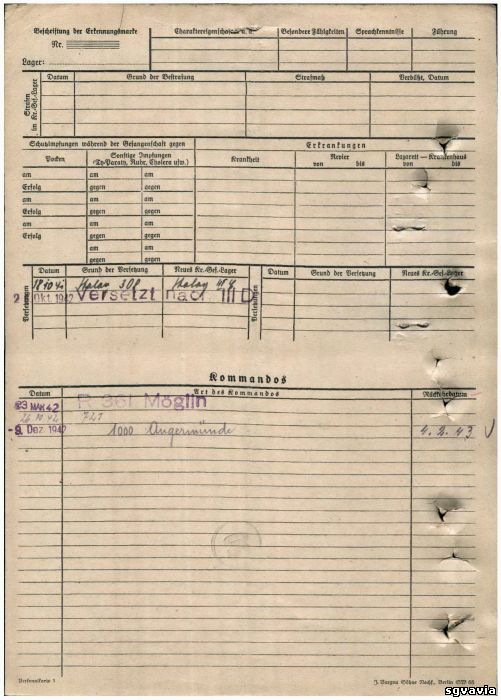 Beschriftung der Erkennungsmarke
Nr.
Lager:
Charaktereigenschaften u. a.
Besondere Fähigkeiten
Sprachkenntnisse
Führung
Strafen im Kr.-Gef.-Lager
Datum
Grund der Bestrafung
Strafmaß
Verbüßt, Datum
Schutzimpfungen während der Gefangenschaft gegen
Erkrankungen
Pocken
Sonstige Impfungen
(Ty-Paraty, Ruhr, Cholera usw.)
Krankheit
Revier
von bis
Lazarett — Krankenhaus
von bis
am am am
Erfolg gegen gegen
am am am
Erfolg gegen gegen
am am am
Erfolg gegen gegen
am am
gegen gegen
Versetzungen
Datum
Grund der Versetzung
Neues Kr.-Gef.-Lager
Datum
Grund der Versetzung
Neues Kr.-Gef.-Lager
Versetzungen
18 10 41 Stalag 308 Stalag
2 Okt. 1942 Versetzt nach III D
Kommandos
Datum
Art des Kommandos
Rückkehrdatum
23 MAI 42 R 361 Möglin
721
-9. Dez. 1942 1000 Angermünde 4. 2. 43
Personalkarte 1
J. Bargou Söhne Nachf., Berlin SW 68
sgvavia